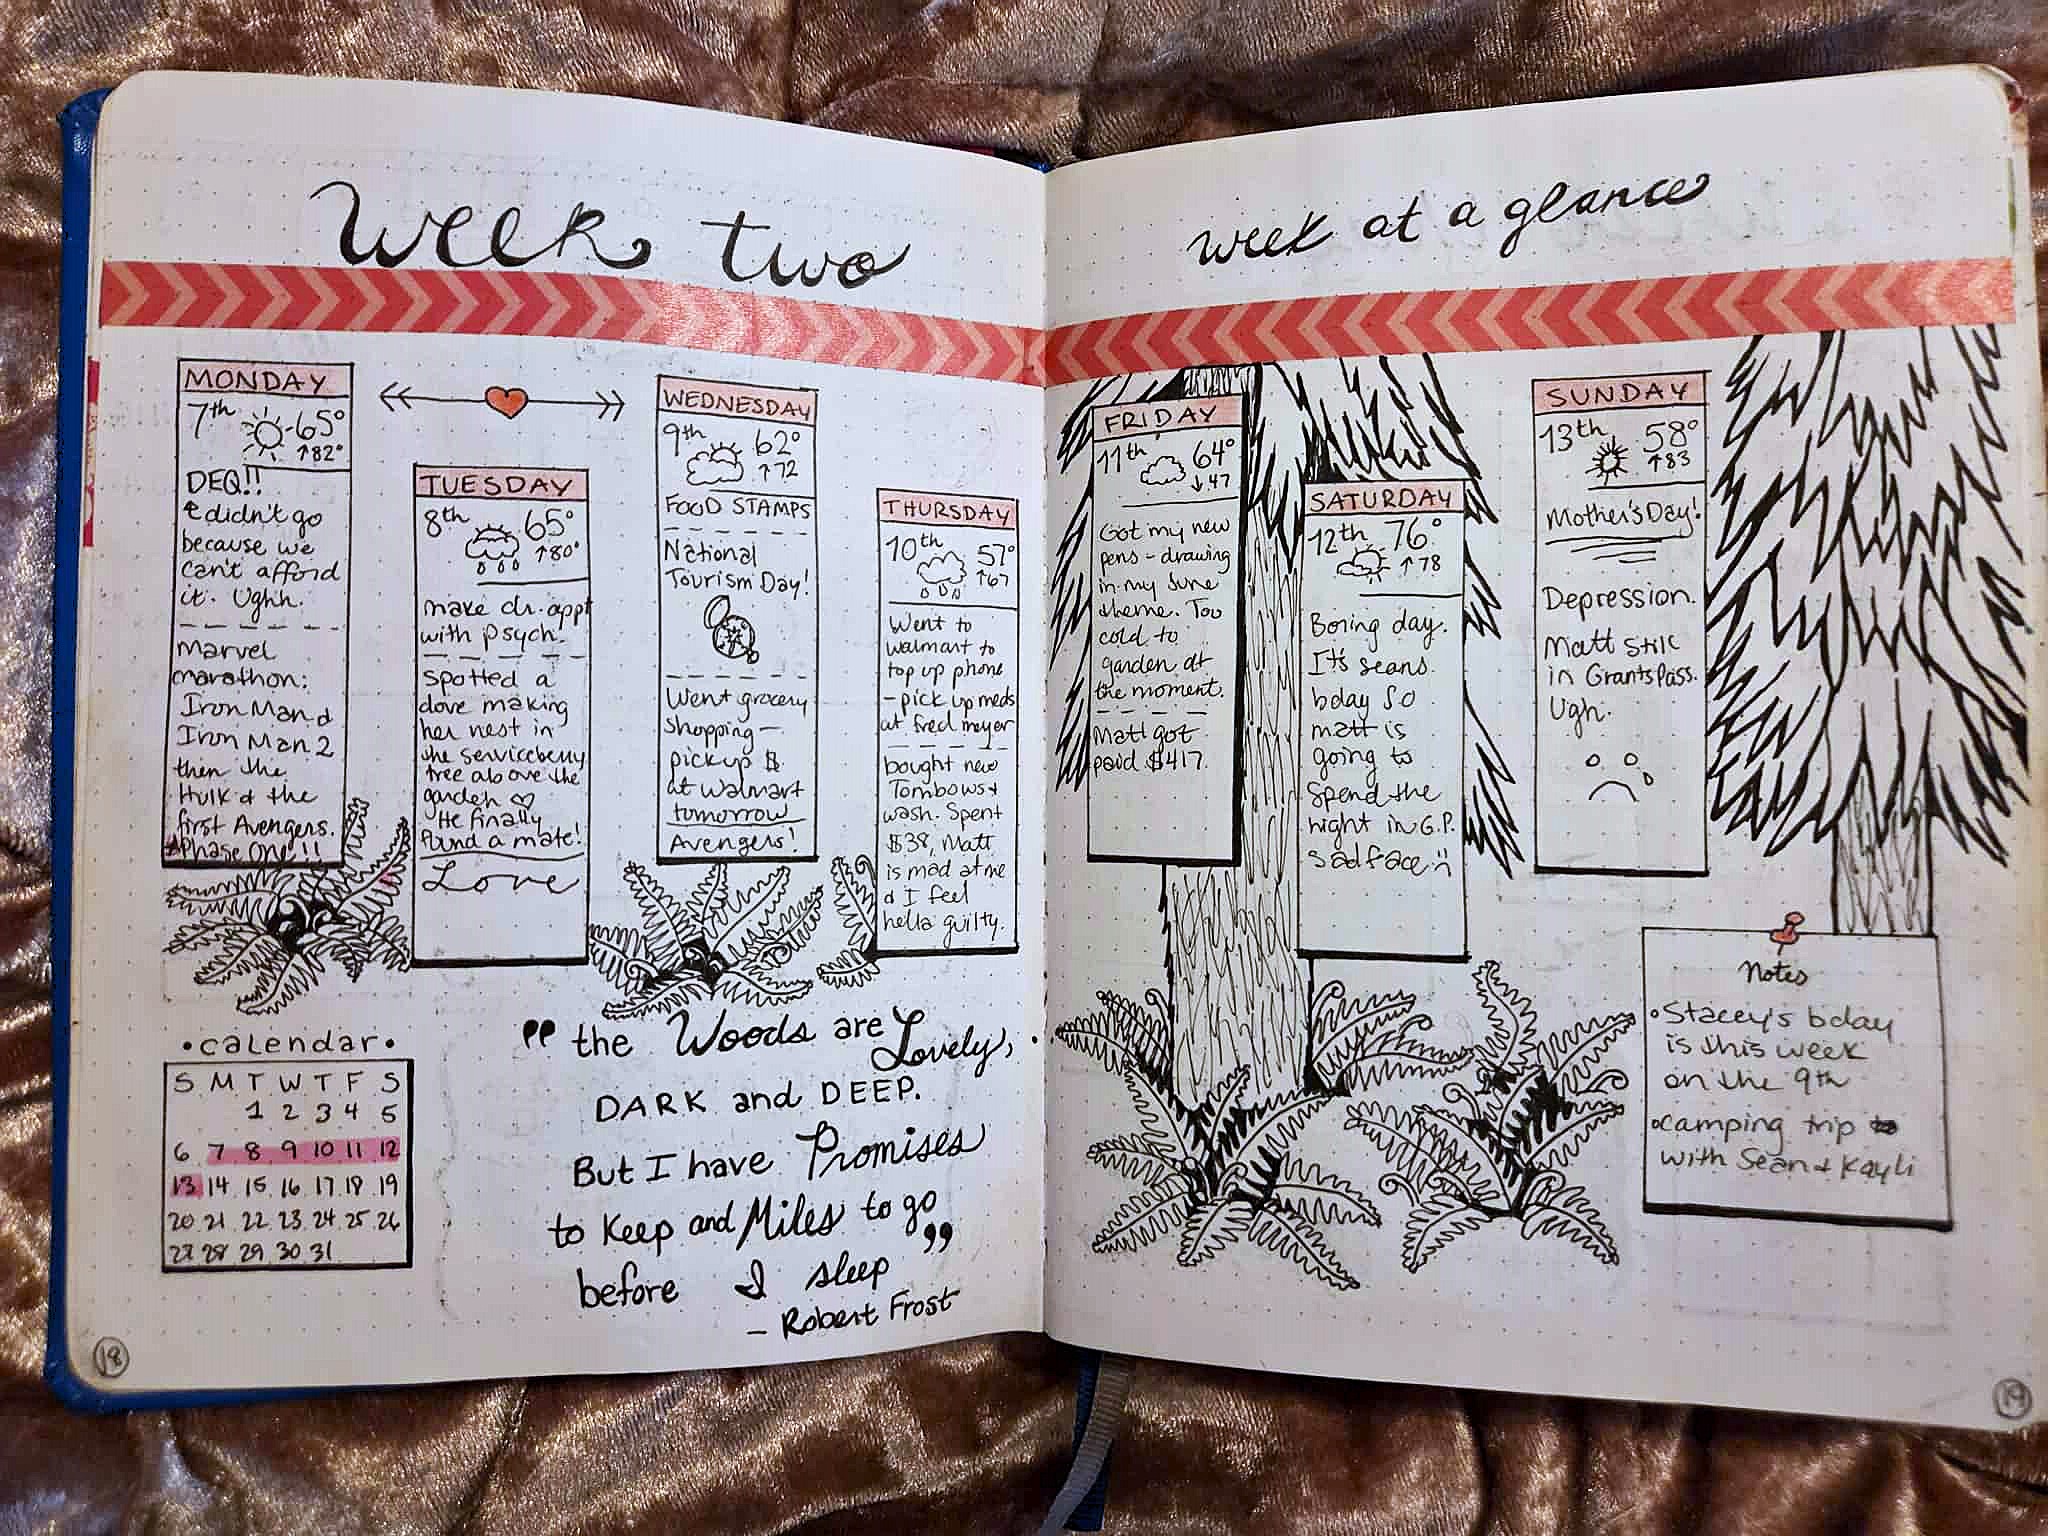 week two
MONDAY
7th 65°
↑82°
DEQ!!
didn't go
because we
can't afford
it. Ughh.
Marvel
marathon:
Iron Man &
Iron Man 2
then the
Hulk & the
first Avengers.
Phase One!!
TUESDAY
8th 65°
↑80°
make dr. appt
with psych.
spotted a
dove making
her nest in
the serviceberry
tree above the
garden ♡
He finally
found a mate!
Love
WEDNESDAY
9th 62°
↑72
FOOD STAMPS
National
Tourism Day!
Went grocery
shopping —
pick up $
at walmart
tomorrow
Avengers!
THURSDAY
10th 57°
↑67
Went to
walmart to
top up phone
- pick up meds
at fred meyer
bought new
Tombows &
wash. Spent
$38, Matt
is mad at me
& I feel
hella guilty.
•calendar•
S M T W T F S
1 2 3 4 5
6 7 8 9 10 11 12
13 14 15 16 17 18 19
20 21 22 23 24 25 26
27 28 29 30 31
"the Woods are Lovely,
DARK and DEEP.
But I have Promises
to keep and Miles to go
before I sleep"
- Robert Frost
18
week at a glance
FRIDAY
11th 64°
↓47
Got my new
pens - drawing
in my June
theme. Too
cold to
garden at
the moment.
Matt got
paid $417.
SATURDAY
12th 76°
↑78
Boring day.
It's seans
bday so
matt is
going to
spend the
night in G.P.
sadface :(
SUNDAY
13th 58°
↑83
Mother's Day!
Depression.
Matt still
in Grants Pass.
Ugh.
Notes
•Stacey's bday
is this week
on the 9th
•camping trip to
with Sean & Kayli
19